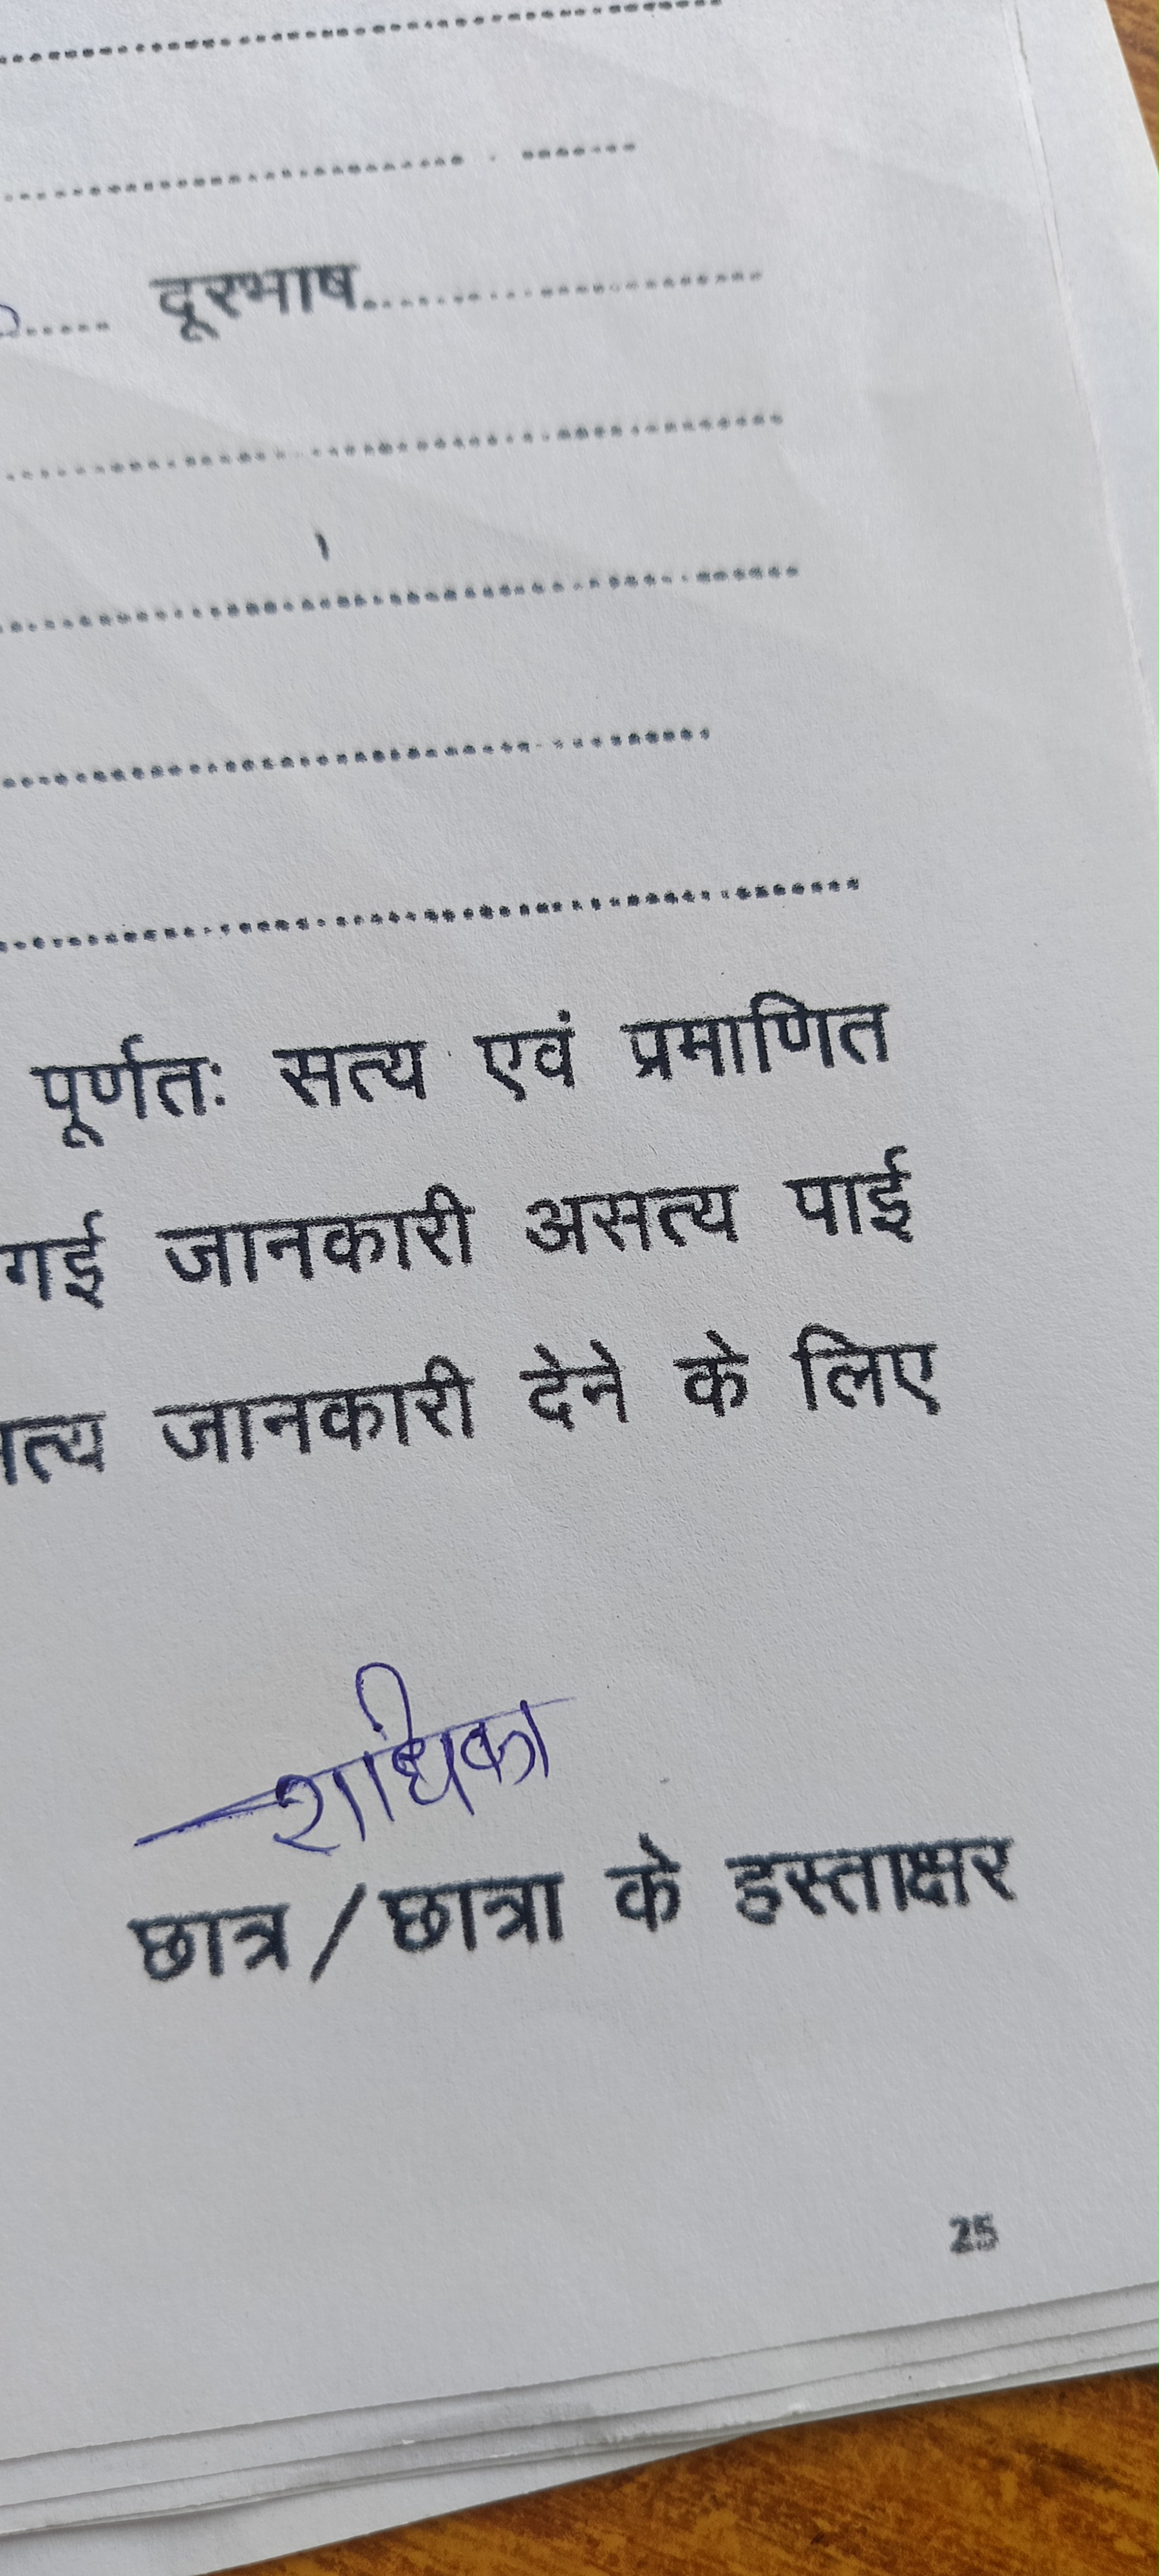 ................................................................
........................................ . .......
..... दूरभाष..............................
................................................................
................................................................
................................................................
................................................................
पूर्णतः सत्य एवं प्रमाणित
गई जानकारी असत्य पाई
त्य जानकारी देने के लिए
राधिका
छात्र/छात्रा के हस्ताक्षर
25